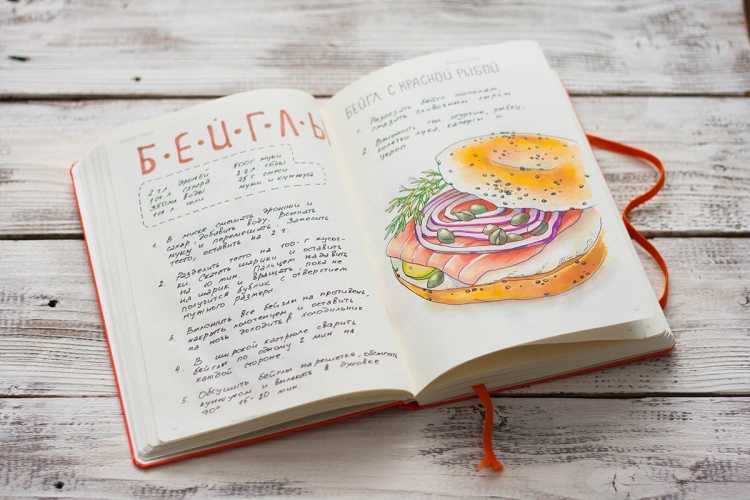 Б·Е·Й·Г·Л·Ы
2 ч.л. дрожжей
500г муки
10г сахара
2 ч.л. соды
350мл воды
25г соли
10г соли
муки и кунжута
1. В миске смешать дрожжи и
сахар, добавить воду, всыпать
муку и перемешать. Замесить
тесто, оставить на 2 ч.
2. Разделить тесто на 100-г кусоч-
ки. Скатать шарики и оставить
на 10 мин. Пальцем надавить
на шарик и вращать, пока не
получится бублик с отверстием
нужного размера
3. Выложить все бейглы на противень,
накрыть полотенцем и оставить
на ночь доходить в холодильник
4. В широкой кастрюле сварить
бейглы по одному 2 мин на
каждой стороне.
5. Обсушить бейглы на решетке, обсыпать
кунжутом и выпекать в духовке
15-20 мин
БЕЙГЛ С КРАСНОЙ РЫБОЙ
1. Разрезать бейгл пополам,
смазать сливочным сыром
2. Выложить огурчик, рыбку,
колечки лука, каперсы и
укроп